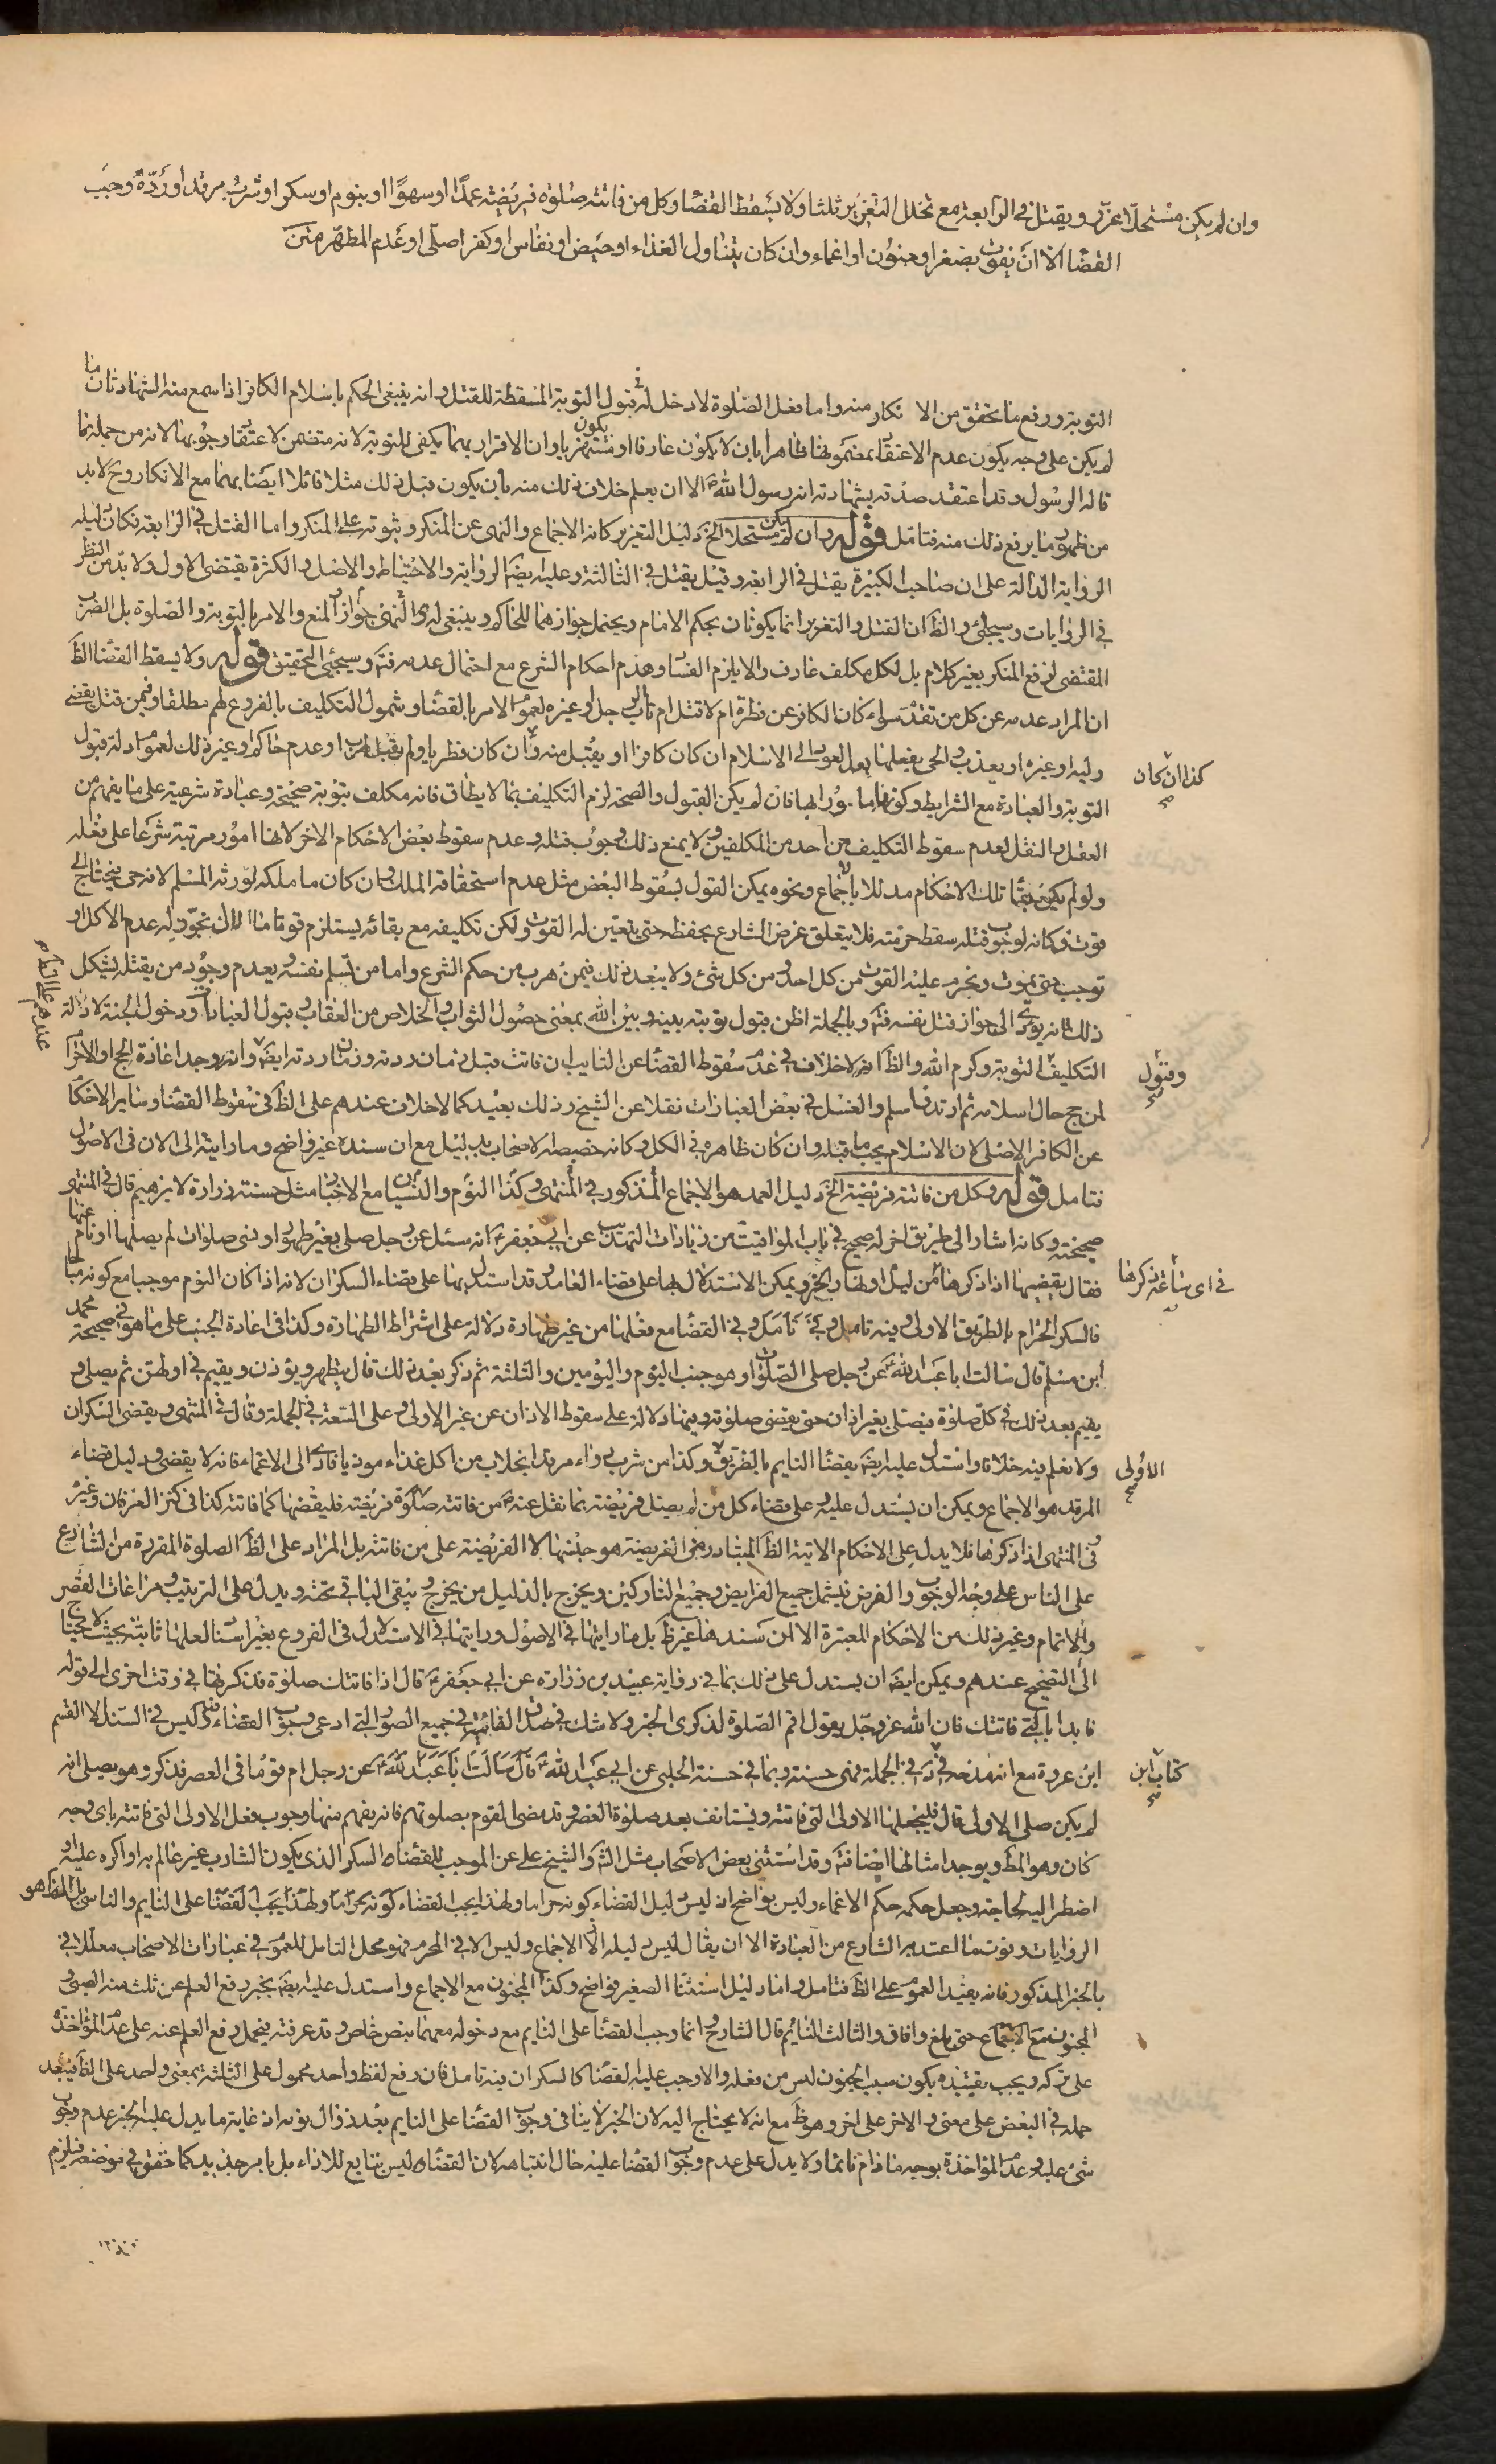 وان لم يكن مستحلا عزر ويقتل في الرابعة مع تخلل التعزير ثلثا ولا يسقط القضا وكل من فاتته صلوة فريضة عمدا او سهوا او بنوم او سكر او شرب مرقد او ردة وجب
القضا الا ان يفوت بصغر او جنون او اغماء وان كان بتناول الغذاء او حيض او نفاس او كفر اصلي او عدم المطهر متن
التوبة ورفع ما تحقق من الانكار منه واما فعل الصلوة لا دخل له في قبول التوبة المسقطة للقتل وانه ينبغي الحكم باسلام الكافر اذا سمع منه الشهادتان ما
لم يكن على وجه يكون عدم الاعتقاد بمضمونها ظاهرا بان لا يكون عارفا او يكون مستهزيا وان الاقرار بهما يكفى للتوبة لانه متضمن لاعتقاد وجوبها لانه من جملة ما
قاله الرسول وقد اعتقد صدقه بشهادته انه رسول الله ص الا ان يعلم خلاف ذلك منه بان يكون قبل ذلك مثلا قائلا ايضا بهما مع الانكار وح لا بد
من ظهور ما يرفع ذلك منه فتامل قوله وان لم يكن مستحلا الخ دليل التعزير كانه الاجماع والنهى عن المنكر وثبوته على المنكر واما القتل في الرابعة فكان دليله
الرواية الدالة على ان صاحب الكبيرة يقتل في الرابعة وقيل يقتل في الثالثة وعليه ايضا الرواية والاحتياط والاصل والكثرة يقتضى الاول ولا بد من النظر
في الروايات وسيجئ والظ ان القتل والتعزير انما يكونان بحكم الامام ويحتمل جوازهما للحاكم وينبغي لدى النهى جواز المنع والامر بالتوبة والصلوة بل الضرب
المقتضى لدفع المنكر بغير كلام بل لكل مكلف عارف والا يلزم الفساد وهدم احكام الشرع مع احتمال عدمه فت وسيجئ التحقيق قوله ولا يسقط القضا الظ
ان المراد عدمه عن كل من تقدم سواء كان الكافر عن فطرة ام لا قتل ام تاب الرجل او غيره لعموم الامر بالقضا وشمول التكليف بالفروع لهم مطلقا وفيمن قتل يقضى
وليه او غيره او يعذب والحى يفعلها بعد العود الى الاسلام ان كان كافرا او يقبل منه وان كان فطريا ولم يقتل لهرب او عدم حاكم وغير ذلك لعموم ادلة قبول
كذا ان كان
التوبة والعبادة مع الشرايط وكونه مامورا بها فان لم يكن القبول والصحة لزم التكليف بما لا يطاق فانه مكلف بتوبة صحيحة وعبادة شرعية على ما يفهم من
العقل والنقل لعدم سقوط التكليف عن احد من المكلفين ولا يمنع ذلك وجوب قتله وعدم سقوط بعض الاحكام الاخر لانها امور مرتبة شرعا على فعله
ولو لم يكن بقاء تلك الاحكام مدللا باجماع ونحوه يمكن القول بسقوط البعض مثل عدم استحقاقه الملك وان كان ما ملكه لورثة المسلم لانه حى فيحتاج الى
قوت وكانه لوجوب قتله سقط حرمته فلا يتعلق غرض الشارع بحفظه حتى يتعين له القوت ولكن تكليفه مع بقائه يستلزم قوتا ما الا ان نجوز له عدم الاكل او
توجب حتى يموت ونحرم عليه القوت من كل احد ومن كل شئ ولا يبعد ذلك فيمن هرب من حكم الشرع واما من سلم نفسه وبعدم وجود من يقتله يشكل
ذلك فانه يؤدى الى جواز قتل نفسه فت وبالجملة اظن قبول توبته بينه وبين الله بمعنى حصول الثواب والخلاص من العقاب وقبول العبادات ودخول الجنة لادلة
عدهم عليه السلام
التكليف والتوبة وكرم الله والظ انه لا خلاف في عدم سقوط القضا عن التايب ان فاتت قبل زمان ردته وزمان ردته ايضا وانه وجد اعادة الحج او الاحرام
وقبول
لمن حج حال اسلامه ثم ارتد فاسلم والغسل في بعض العبارات نقلا عن الشيخ وذلك بعيد كما لا خلاف عندهم على الظ في سقوط القضا وساير الاحكام
عن الكافر الاصلى لان الاسلام يجب ما قبله وان كان ظاهره في الكل وكانه خصصه الاصحاب بدليل مع ان سنده غير واضح وما رايته الى الان في الاصول
فتامل قوله وكل من فاتته فريضة الخ دليل العمد هو الاجماع المذكور في المنتهى وكذا النوم والنسيان مع الاخبار مثل حسنة زرارة لابرهيم قال في المنتهى
صحيحة وكانه اشار الى طريق اخر له صحيح في باب المواقيت من زيادات التهذيب عن ابى جعفر ع انه سئل عن رجل صلى بغير طهور او نسى صلوات لم يصلها او نام عنها
فقال يقضيها اذا ذكرها من ليل او نهار الخبر ويمكن الاستدلال بها على قضاء العامد وقد استدل بها على قضاء السكران لانه اذا كان النوم موجبا مع كونه مباحا
في اى ساعة ذكرها
فالسكر الحرام بالطريق الاولى وفيه تامل وفي القضا مع فعلها من غير طهارة دلالة على اشتراط الطهارة وكذا في اعادة الجنب على ما هو في صحيحة محمد
ابن مسلم قال سالت ابا عبد الله ع عن رجل صلى الصلوات وهو جنب اليوم واليومين والثلثة ثم ذكر بعد ذلك قال يتطهر ويؤذن ويقيم في اولهن ثم يصلى و
يقيم بعد ذلك في كل صلوة فيصلى بغير اذان حتى يقضى صلوته وفيها دلالة على سقوط الاذان عن غير الاولى وعلى السعة في الجملة وقال في المنتهى ويقضى السكران
ولا نعلم فيه خلافا واستدل عليه ايضا بقضا النايم بالطريق وكذا من شرب دواء مرقدا بخلاف من اكل غذاء موذيا فادى الى الاغماء فانه لا يقضى ودليل قضاء
الاولى
المرقد هو الاجماع ويمكن ان يستدل عليه وعلى قضاء كل من لم يصل فريضة بما نقل عنه ص من فاتته صلوة فريضة فليقضها كما فاتته كذا في كنز العرفان وغيره
وفي المنتهى اذا ذكرها فلا يدل على الاحكام الاتية الظ المتبادر من الفريضة هو جنسها لا الفريضة على من فاتته بل المراد على الظ الصلوة المقررة من الشارع
على الناس على وجه الوجوب والفرض فيشمل جميع الفرايض وجميع التاركين ويخرج بالدليل من يخرج ويبقى الباقي تحته ويدل على الترتيب ومراعات القصر
والاتمام وغير ذلك من الاحكام المعتبرة الا ان سندها غير ظ بل ما رايتها في الاصول ورايتها في الاستدلال في الفروع بغير اسناد لعلها ثابتة بحيث لا يحتاج
الى التصحيح عندهم ويمكن ايضا ان يستدل على ذلك بما في رواية عبيد بن زرارة عن ابى جعفر ع قال اذا فاتتك صلوة فذكرتها في وقت اخرى الى قوله
فابدا بالتى فاتتك فان الله عز وجل يقول اقم الصلوة لذكرى الخبر ولا شك في صدق الفائتة في جميع الصور التى ادعى وجوب القضاء وليس في السند الا القسم
ابن عروة مع انه مدحه في الجملة فهى حسنة وبما في حسنة الحلبى عن ابى عبد الله ع قال سالت ابا عبد الله ع عن رجل ام قوما في العصر فذكر وهو يصلى انه
كتاب ابن
لم يكن صلى الاولى قال فليجعلها الاولى التى فاتته ويستانف بعد صلوة العصر وقد مضى القوم بصلوتهم فانه يفهم منها وجوب فعل الاولى التى فاتته باى وجه
كان وهو المط ويوجد امثالها ايضا فت وقد استثنى بعض الاصحاب مثل الش والشيخ على عن الموجب للقضاء السكر الذى يكون الشارب غير عالم به او اكره عليه او
اضطر اليه لحاجة وجعل حكمه حكم الاغماء وليس بواضح اذ ليس دليل القضاء كونه حراما ولهذا يجب القضاء كونه حراما ولهذا يجب القضا على النايم والناسى بل الظ هو
الروايات وفوت ما اعتد به الشارع من العبادة الا ان يقال ليس دليله الا الاجماع وليس الا في المحرم فهو محل التامل للعموم في عبارات الاصحاب معللا في
بالخبر المذكور فانه يفيد العموم على الظ فتامل واما دليل استثنا الصغير فواضح وكذا المجنون مع الاجماع واستدل عليه ايضا بخبر رفع القلم عن ثلث منه الصبى و
المجنون مع الاجماع حتى يبلغ وافاق والثالث النايم قال الشارح وانما وجب القضا على النايم مع دخوله معهما بنص خاص وقد عرفته فيحمل رفع القلم عنه على عدم المؤاخذة
على تركه ويجب تقييده بكون سبب الجنون ليس من فعله والا وجب عليه القضا كالسكران فيه تامل فان رفع لفظ واحد محمول على الثلثة بمعنى واحد على الظ فيبعد
حمله في البعض على معنى والاخر على اخر وهو ظ مع انه لا يحتاج اليه لان الخبر لا ينافى وجوب القضا على النايم بعد زوال نومه اذ غاية ما يدل عليه الخبر عدم وجوب
شئ عليه وعدم المؤاخذة بوجه ما دام نائما ولا يدل على عدم وجوب القضا عليه حال انتباهه لان القضاء ليس بتابع للاداء بل بامر جديد كما حقق في موضعه فيلزم